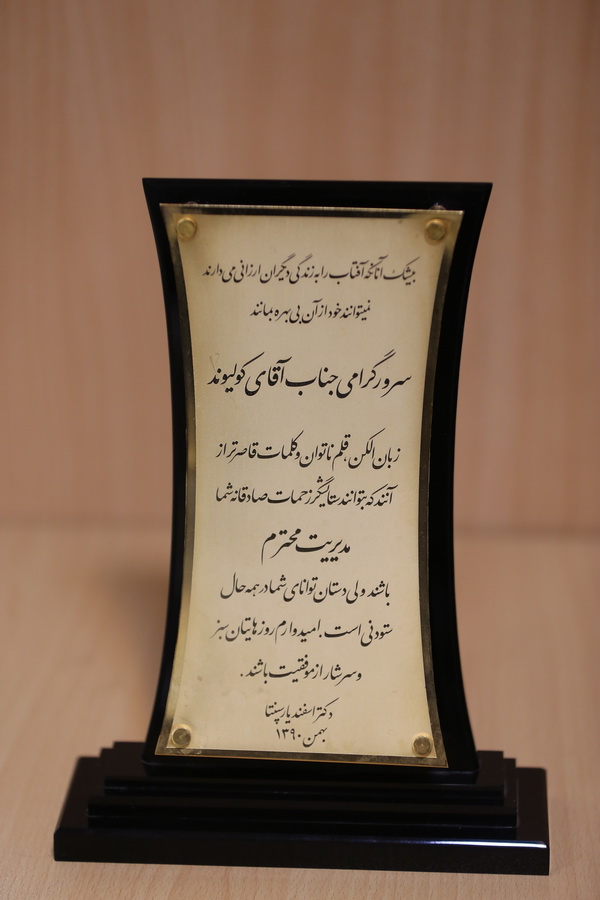 بیشک آنانکه آفتاب را به زندگی دیگران ارزانی می دارند
نمیتوانند خود از آن بی بهره بمانند
سرور گرامی جناب آقای کولیوند
زبان الکن، قلم ناتوان و کلمات قاصرتر از
آنند که بتوانند ستایشگر زحمات صادقانه شما
مدیریت محترم
باشند ولی دستان توانای شما در همه حال
ستودنی است. امیدوارم روزهایتان سبز
و سرشار از موفقیت باشند.
دکتر اسفندیار سپنتا
بهمن ۱۳۹۰